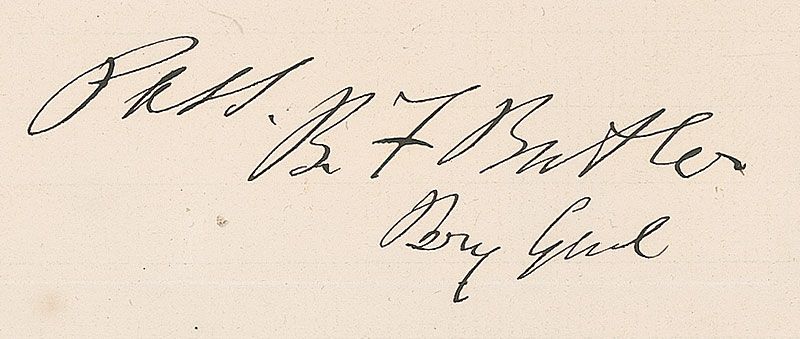 Pass.
B F Butler
Brig Genl